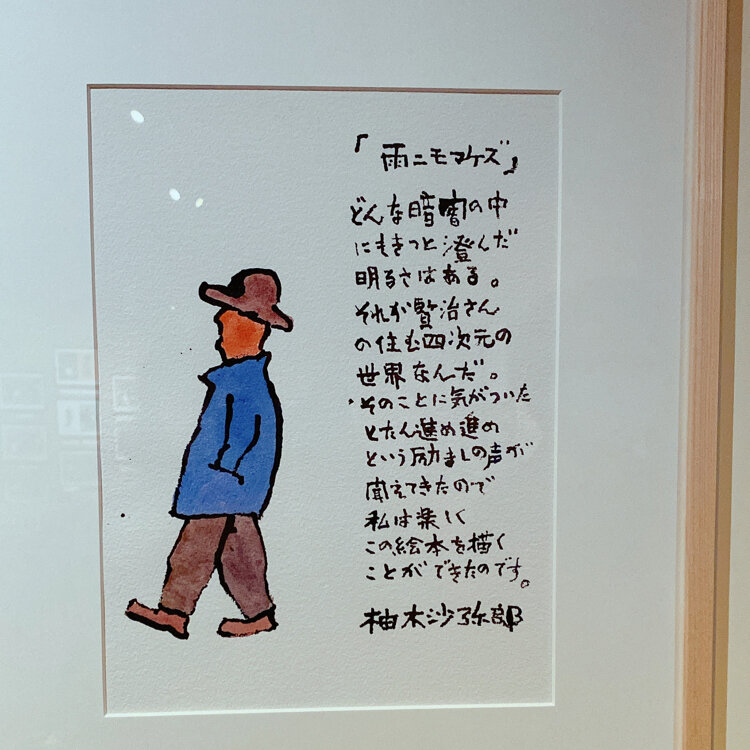 「雨ニモマケズ」
どんな暗闇の中
にもきっと澄んだ
明るさはある。
それが賢治さん
の住む四次元の
世界なんだ。
そのことに気がついた
とたん進め進め
という励ましの声が
聞えてきたので
私は楽しく
この絵本を描く
ことができたのです。
柚木沙弥郎